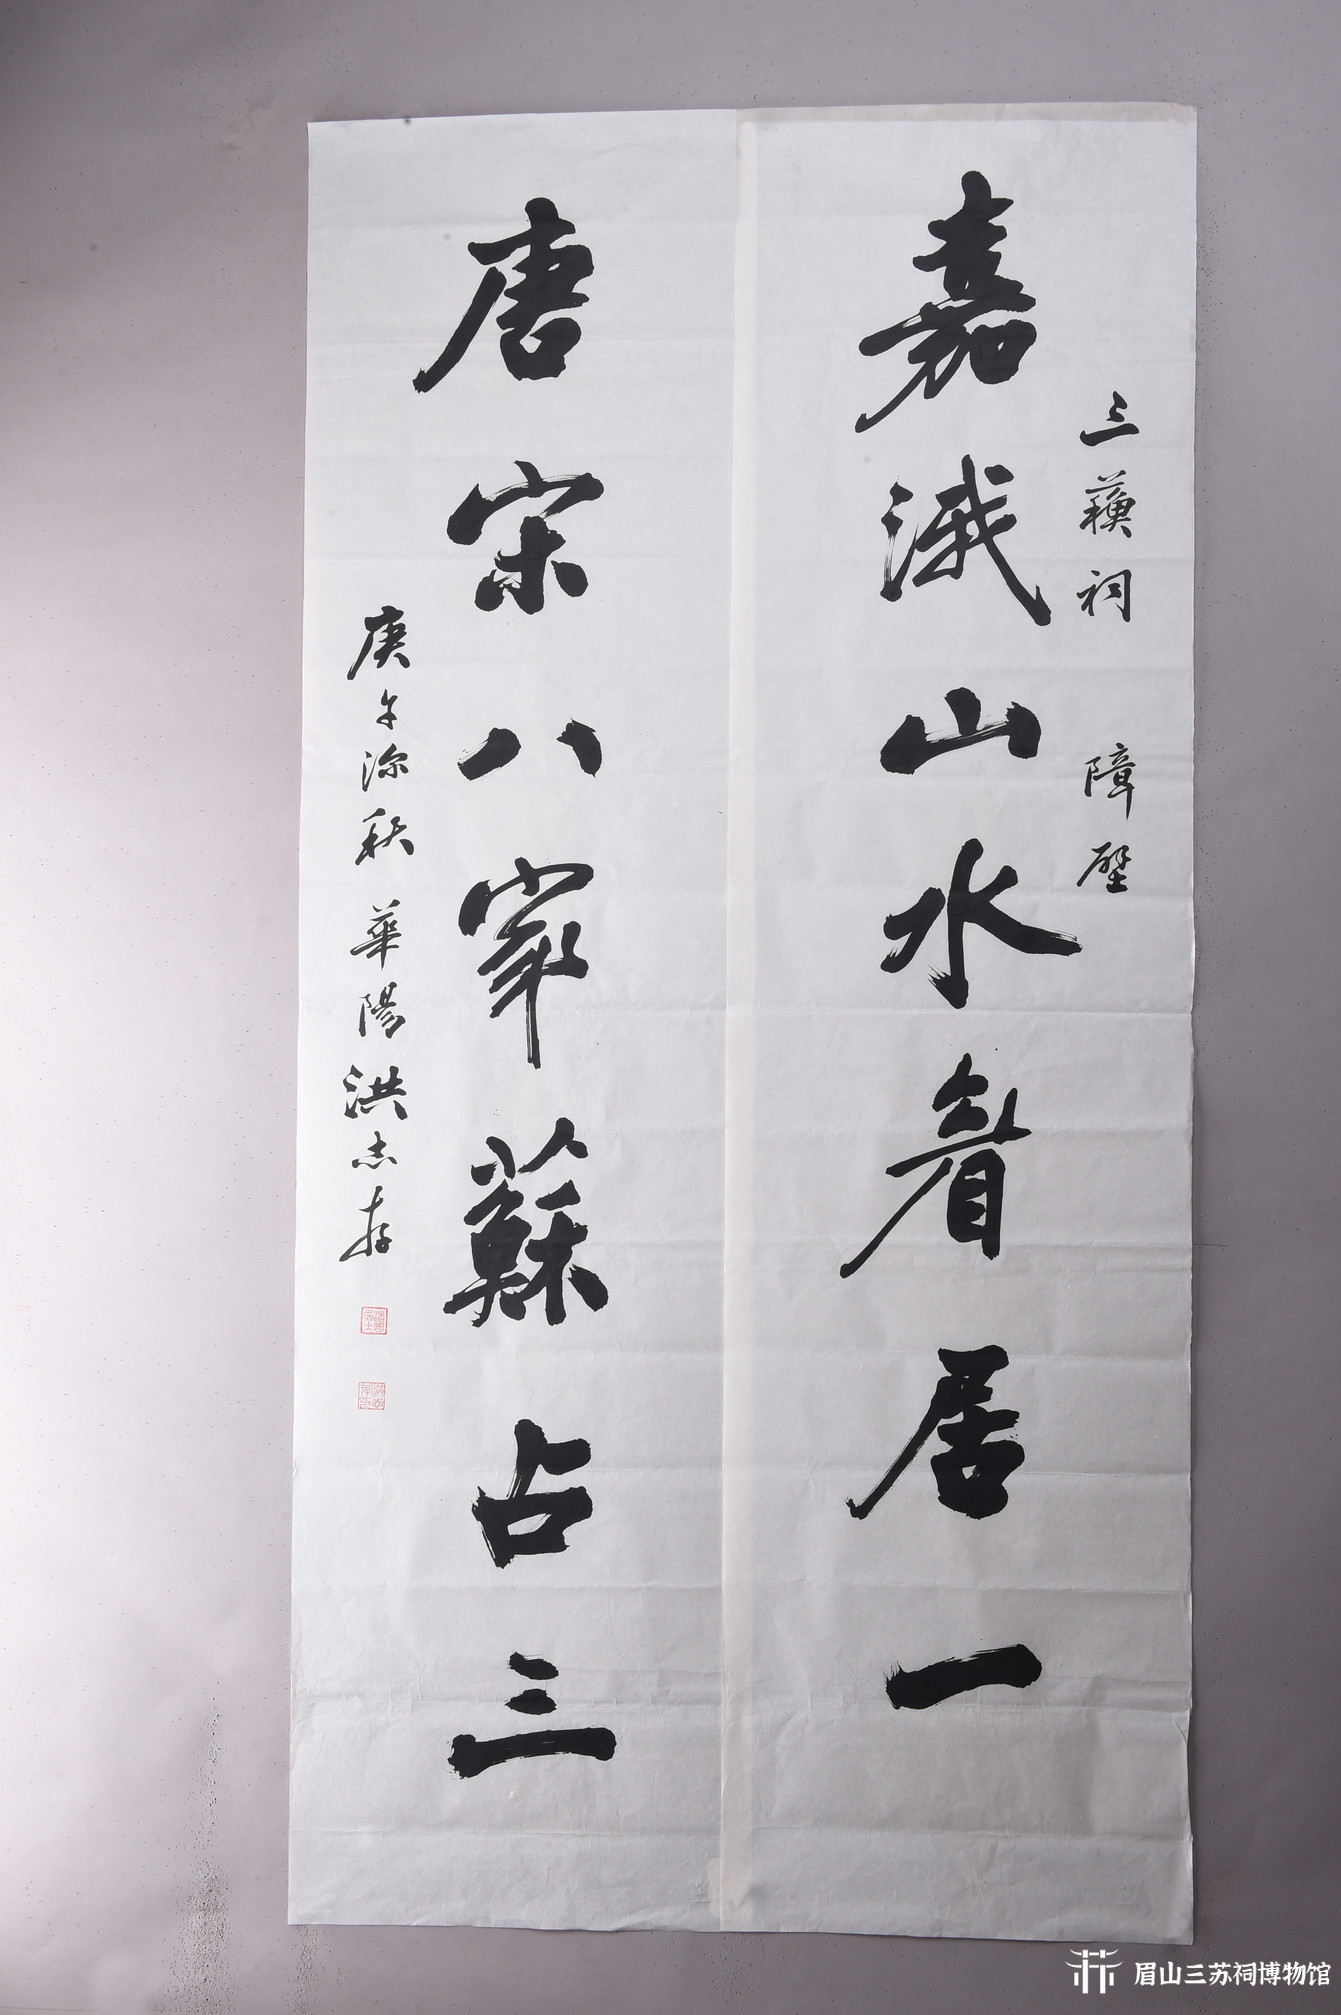 三蘇祠 障壁
嘉渽山水眉居一
唐宋八家蘇占三
庚午深秋 華陽洪志存
眉山三苏祠博物馆